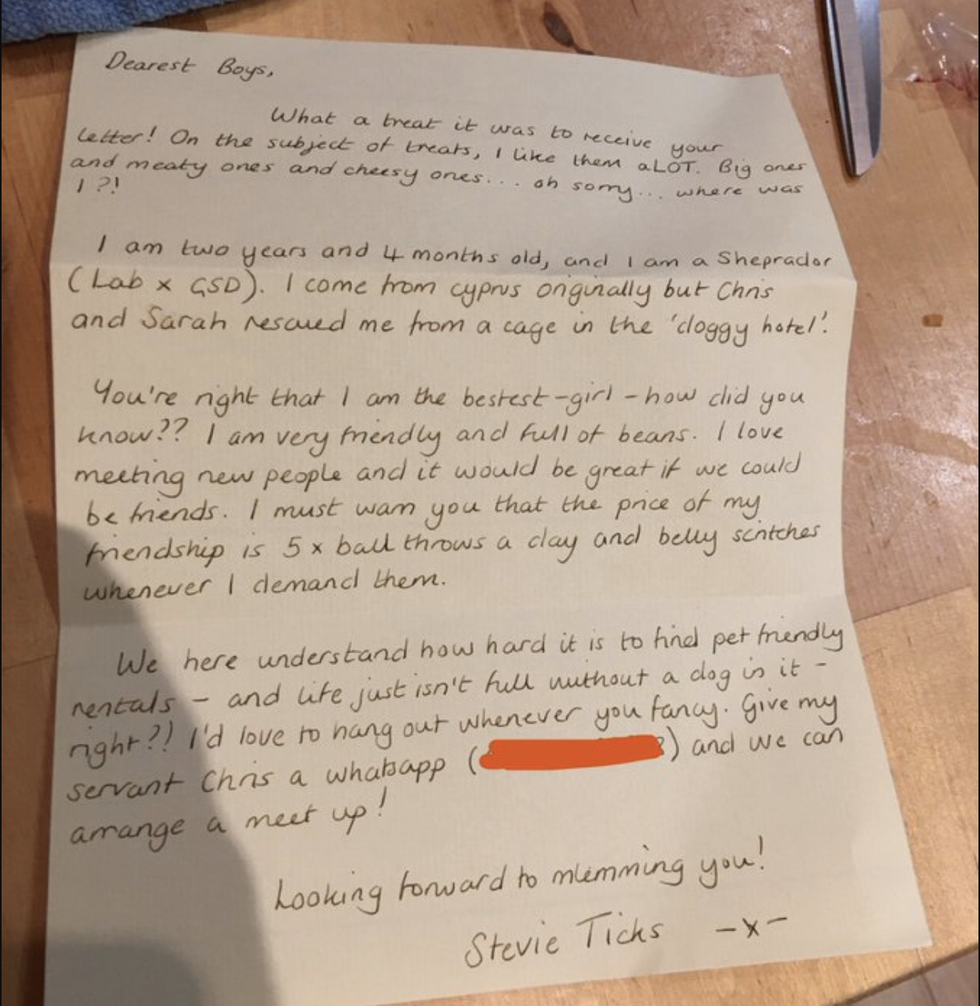 Dearest Boys,
What a treat it was to receive your
letter! On the subject of treats, I like them aLOT. Big ones
and meaty ones and cheesy ones... oh sorry... where was
I ?!
I am two years and 4 months old, and I am a Sheprador
(Lab x GSD). I come from cyprus originally but Chris
and Sarah rescued me from a cage in the 'doggy hotel'.
You're right that I am the bestest-girl - how did you
know?? I am very friendly and full of beans. I love
meeting new people and it would be great if we could
be friends. I must warn you that the price of my
friendship is 5 x ball throws a day and belly scritches
whenever I demand them.
We here understand how hard it is to find pet friendly
rentals - and life just isn't full without a dog in it -
right?!) I'd love to hang out whenever you fancy. Give my
servant Chris a whatsapp ( ) and we can
arrange a meet up!
Looking forward to mlemming you!
Stevie Ticks -x-